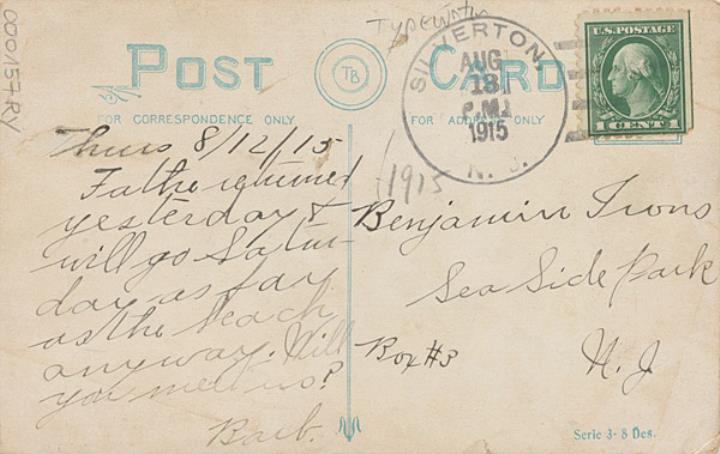 000157RY
TYPEWRITER
POST CARD
TB
FOR CORRESPONDENCE ONLY
FOR ADDRESS ONLY
SILVERTON,
AUG
13
P.M.
1915
N. J.
U.S. POSTAGE
1 CENT 1
(1915
Thurs 8/12/15
Father returned
yesterday &
will go Satur-
day as far
as the beach
anyway. Will
you meet us?
Barb.
Benjamin Irons
Sea Side Park
Box #3
N. J.
Serie 3-8 Des.